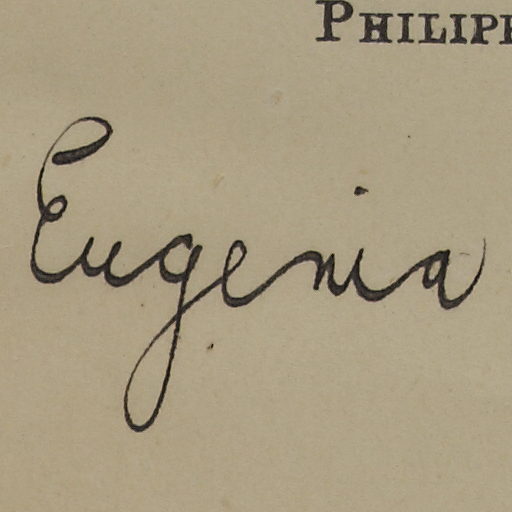 PHILIPP
Eugenia